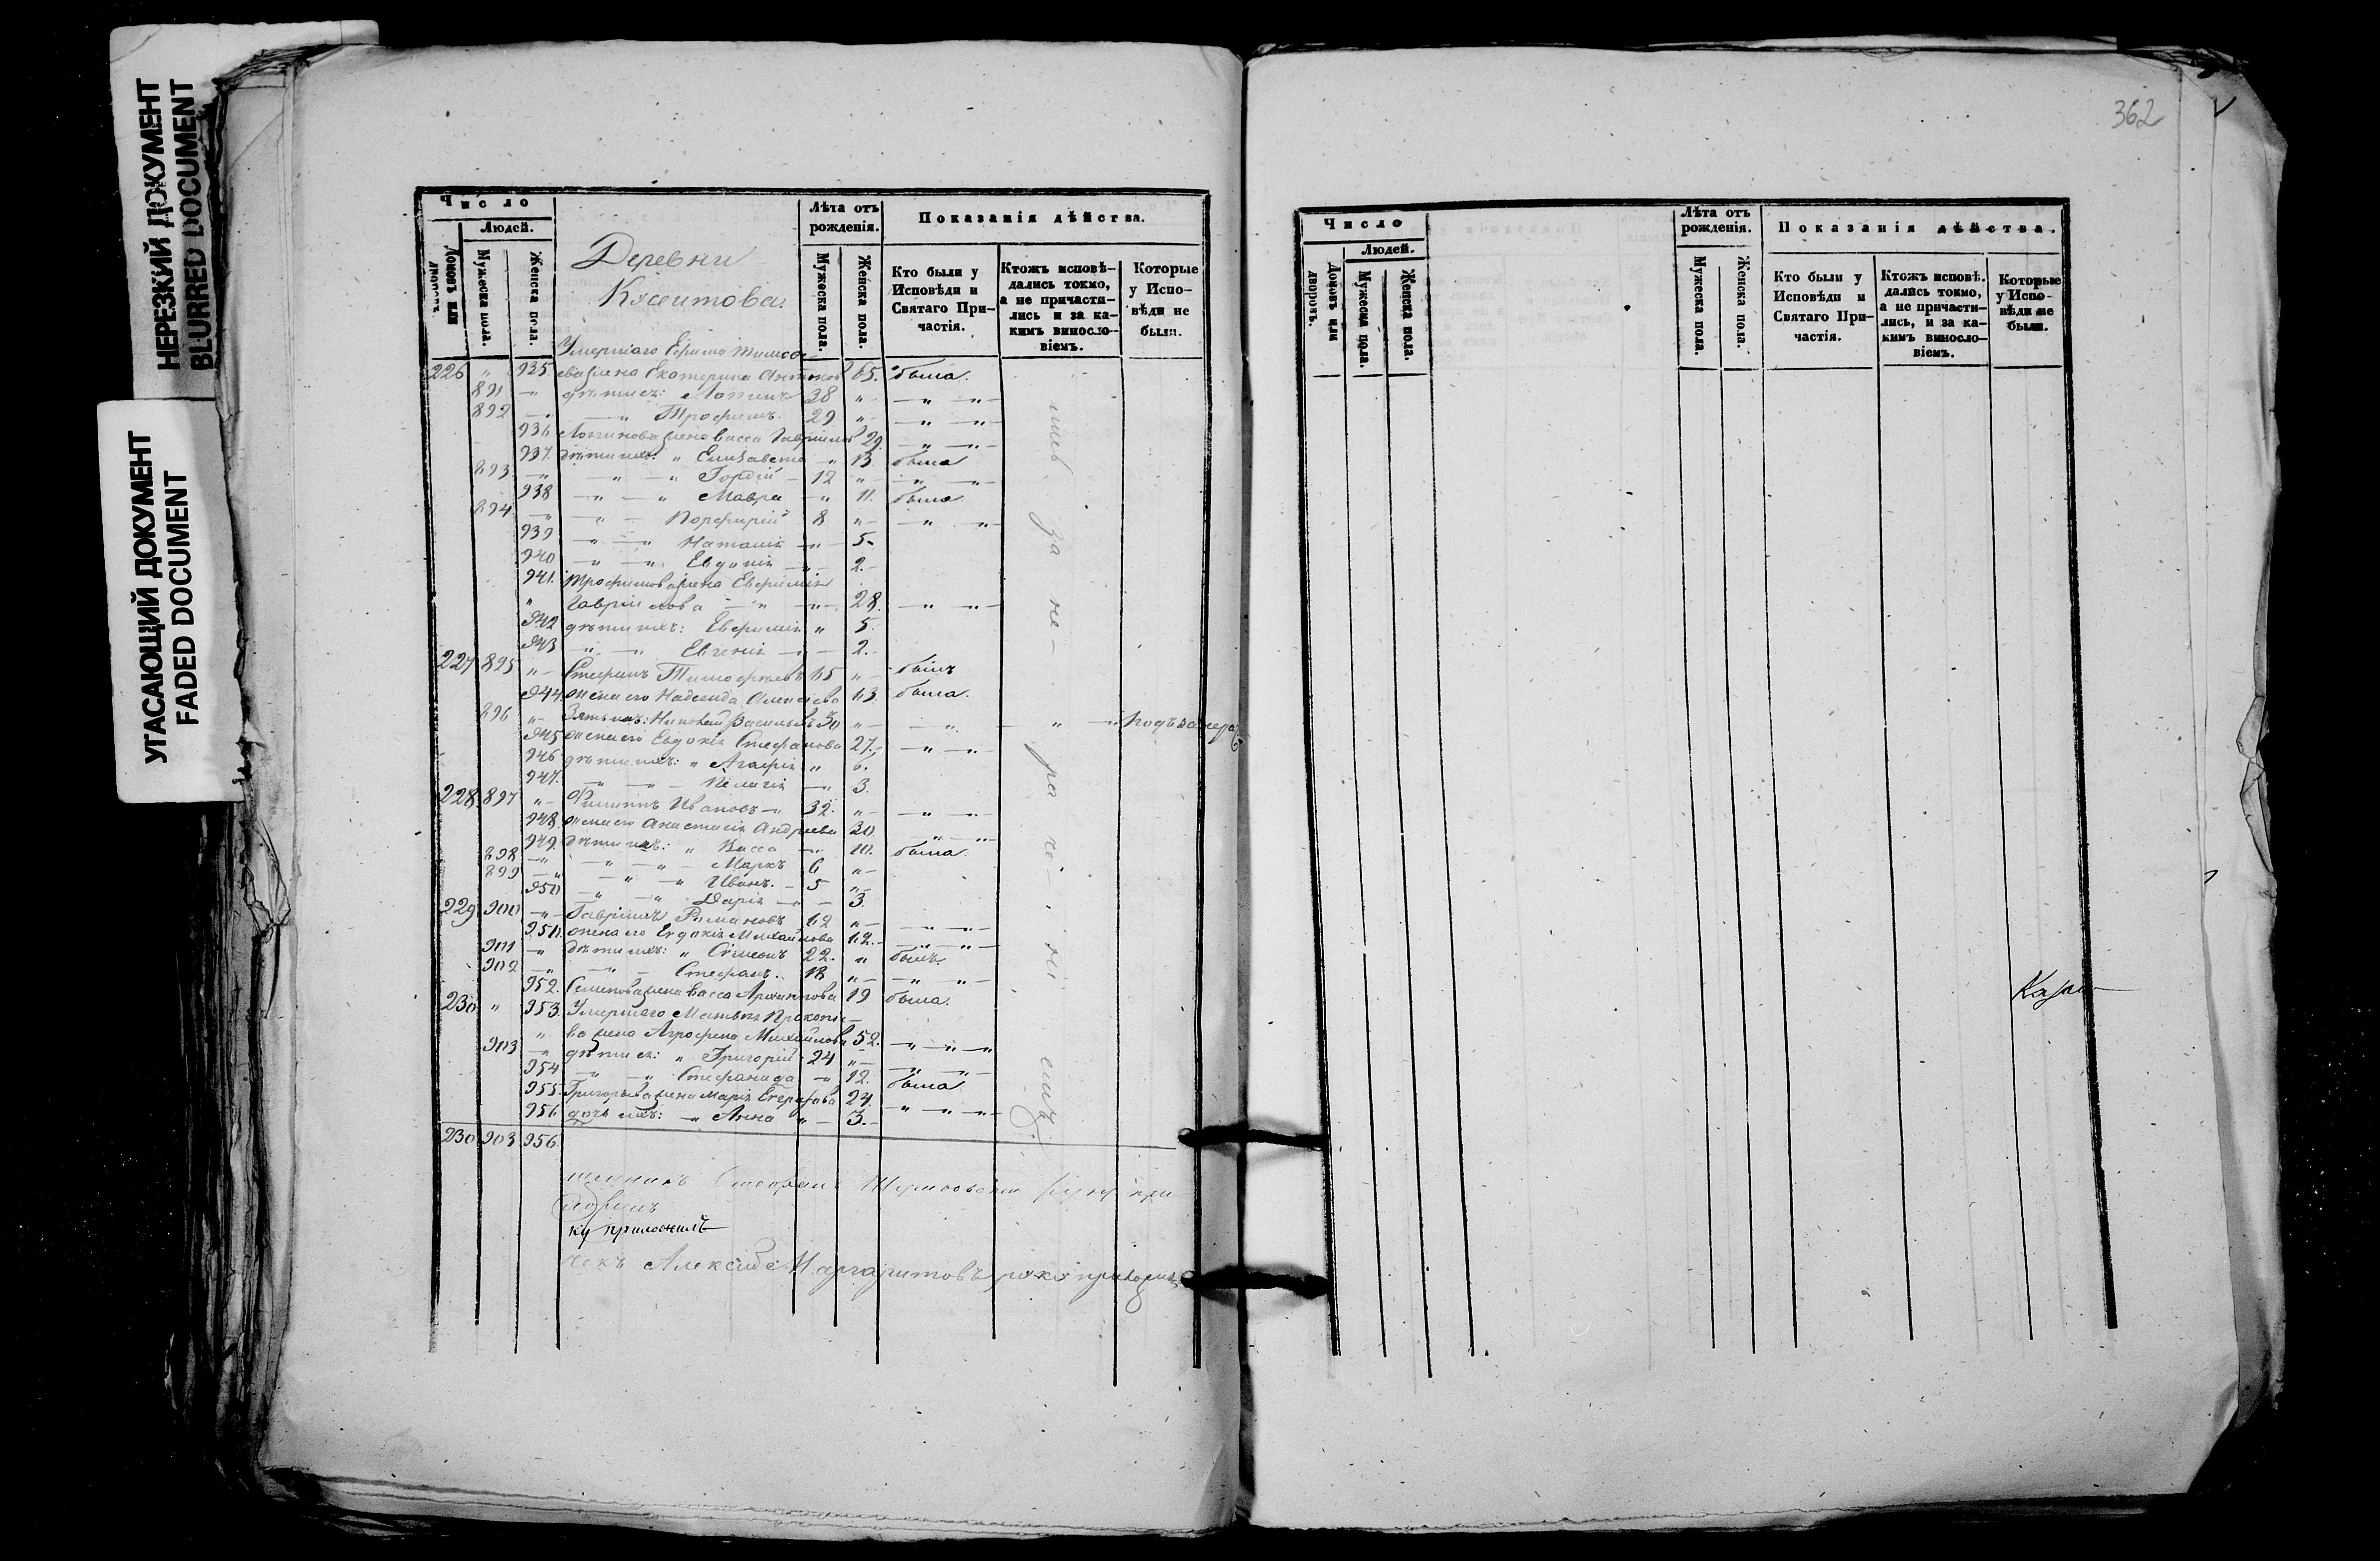 НЕРЕЗКИЙ ДОКУМЕНТ
BLURRED DOCUMENT
УГАСАЮЩИЙ ДОКУМЕНТ
FADED DOCUMENT
Число
Людей.
Домовъ или дворовъ.
Мужеска пола.
Женска пола.
Деревни
Лѣта отъ рожденія.
Мужеска пола.
Женска пола.
Показанія дѣйства.
Кто были у Исповѣди и Святаго При-частія.
Ктожъ исповѣ-дались токмо, а не причасти-лись и за ка-кимъ винosло-віемъ.
Которые у Испо-вѣди не были.
Умершаго Ефима Тимоѳе-
226 " 935. ева жена Екатерина Антонов 65. была.
891 -"- дѣти ея: Логинъ 38 "- -"- -"-
892 -"- Трофимъ. 29 "- -"- -"-
936 Логинова жена Васса Гаврилов 29. -"- -"-
937. дѣти ихъ: " Елизавета -"- 13. была
893 -"- -"- -"- Гордій - 12 "- -"- -"-
938 -"- -"- Мавра -"- 11. была
894 -"- -"- - Порфирій 8 "- -"- "-
939 -"- -"- Наталія -"- 5.
940 -"- -"- Евдокія -"- 2.-
941. Трофимова жена Евфимія
" Гаврилова -"- -"- 28. -"- "-
942 дѣти ихъ: Евфимія " 5.
943 -"- -"- Евгенія - - 2.-
227 895 "- Стефанъ Тимофѣевъ 65 "- былъ
944 жена его Надежда Алексѣева 63 была.
896 "- Зять ихъ: Николай Васильевъ 30 "- -"- - " -"-
945 жена его Евдокія Стефанова 27.- -"- -"-
946 дѣти ихъ: " Агафія " 6.
947. -"- -"- - Пелагія -"- 3.
228. 897 "- Филиппъ Ивановъ -"- 32. "- -"- -"-
948. жена его Анастасія Андреева 30. -"- -"-
949. дѣти ихъ: " Васса -"- 10. была
898 -"- -"- -"- Маркъ 6 "-
899 -"- -"- -"- Иванъ. - 5 "-
950 -"- -"- Дарія -"- - 3.
229 900 -"- Гавріилъ Романовъ 62 "- -"- -"-
951. жена его Евдокія Михайлова 62.- -"- -"-
901 -"- дѣти ихъ: " Сѵмеонъ 22. " былъ.
902 -"- -"- - Стефанъ. 18 "- -"- -"-
952. Семенова жена Васса Архиппова 19 была.
230 " 953. Умершаго Матвѣя Прокопье-
" ва жена Агрофена Михайлова 52. -"- -"- "
903 -"- дѣти ея: " Григорій 24 "- -"- -"-
954 -"- -"- Стефанида -"- 12. была
955. Григорьева жена Марія Егорова 24. -"- -"-
956 дочь ихъ: -"- Анна "- 3.-
230 903 956.
Стефанъ руку при
ложилъ
ку приложилъ
Алексѣй Маргаритовъ руку приложилъ
362
Число
Людей.
Домовъ или дворовъ.
Мужеска пола.
Женска пола.
Лѣта отъ рожденія.
Мужеска пола.
Женска пола.
Показанія дѣйства.
Кто были у Исповѣди и Святаго При-частія.
Ктожъ исповѣ.дались токмо, а не причасти-лись, и за ка-кимъ винosло-віемъ.
Которые у Испо-вѣди не были.